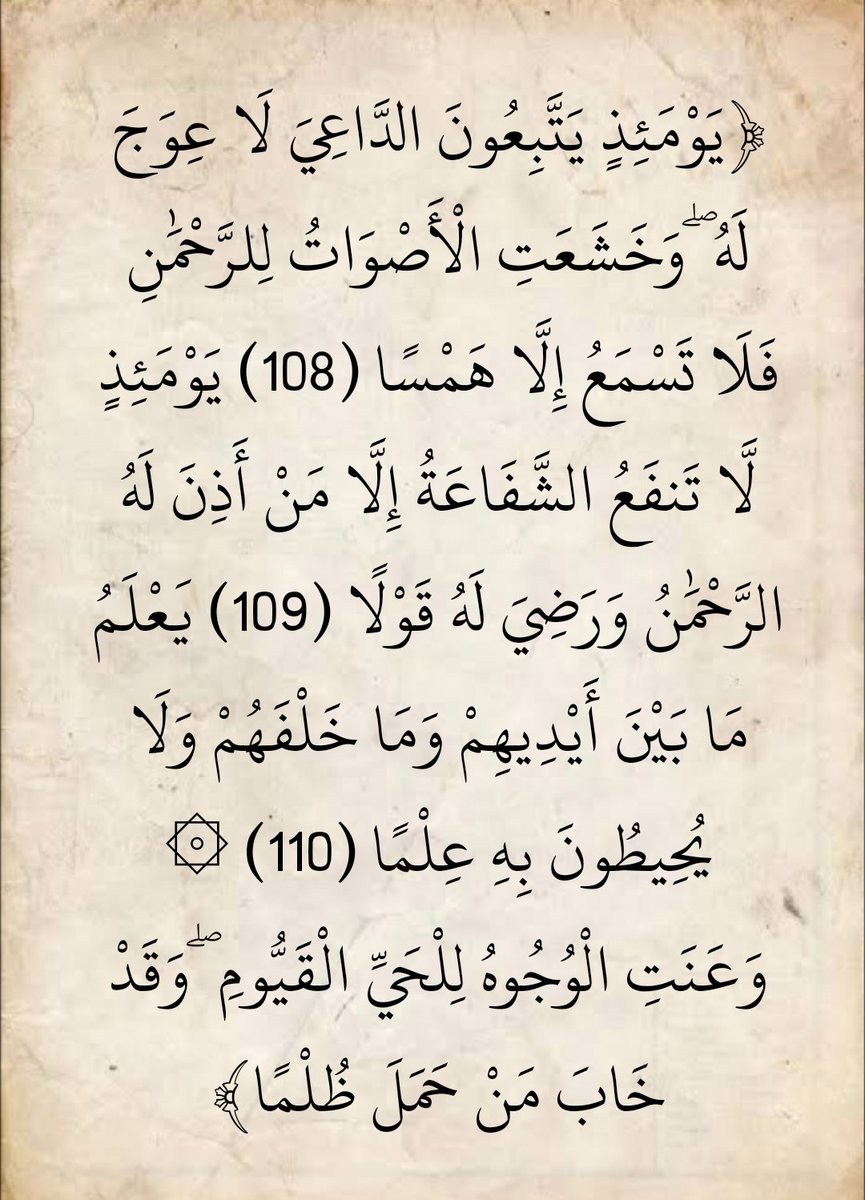 ﴿يَوْمَئِذٍ يَتَّبِعُونَ الدَّاعِيَ لَا عِوَجَ
لَهُ ۖ وَخَشَعَتِ الْأَصْوَاتُ لِلرَّحْمَٰنِ
فَلَا تَسْمَعُ إِلَّا هَمْسًا (108) يَوْمَئِذٍ
لَّا تَنفَعُ الشَّفَاعَةُ إِلَّا مَنْ أَذِنَ لَهُ
الرَّحْمَٰنُ وَرَضِيَ لَهُ قَوْلًا (109) يَعْلَمُ
مَا بَيْنَ أَيْدِيهِمْ وَمَا خَلْفَهُمْ وَلَا
يُحِيطُونَ بِهِ عِلْمًا (110) ۞
وَعَنَتِ الْوُجُوهُ لِلْحَيِّ الْقَيُّومِ ۖ وَقَدْ
خَابَ مَنْ حَمَلَ ظُلْمًا﴾